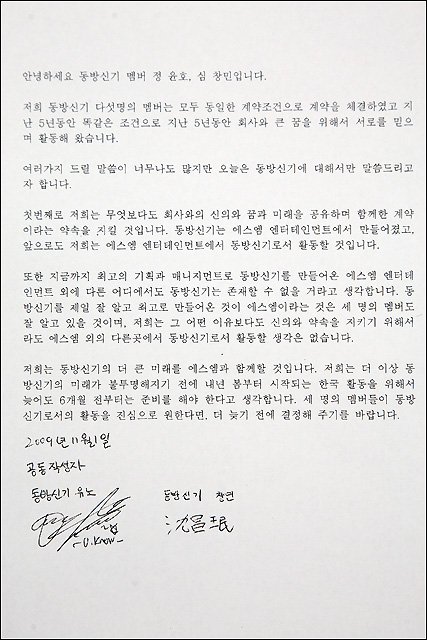 안녕하세요 동방신기 멤버 정 윤호, 심 창민입니다.
저희 동방신기 다섯명의 멤버는 모두 동일한 계약조건으로 계약을 체결하였고 지
난 5년동안 똑같은 조건으로 지난 5년동안 회사와 큰 꿈을 위해서 서로를 믿으
며 활동해 왔습니다.
여러가지 드릴 말씀이 너무나도 많지만 오늘은 동방신기에 대해서만 말씀드리고
자 합니다.
첫번째로 저희는 무엇보다도 회사와의 신의와 꿈과 미래을 공유하며 함께한 계약
이라는 약속을 지킬 것입니다. 동방신기는 에스엠 엔터테인먼트에서 만들어졌고,
앞으로도 저희는 에스엠 엔터테인먼트에서 동방신기로서 활동할 것입니다.
또한 지금까지 최고의 기획과 매니지먼트로 동방신기를 만들어온 에스엠 엔터테
인먼트 외에 다른 어디에서도 동방신기는 존재할 수 없을 거라고 생각합니다. 동
방신기를 제일 잘 알고 최고로 만들어온 것이 에스엠이라는 것은 세 명의 멤버도
잘 알고 있을 것이며, 저희는 그 어떤 이유보다도 신의와 약속을 지키기 위해서
라도 에스엠 외의 다른곳에서 동방신기로서 활동할 생각은 없습니다.
저희는 동방신기의 더 큰 미래를 에스엠과 함께할 것입니다. 저희는 더 이상 동
방신기의 미래가 불투명해지기 전에 내년 봄부터 시작되는 한국 활동을 위해서
늦어도 6개월 전부터는 준비를 해야 한다고 생각합니다. 세 명의 멤버들이 동방
신기로서의 활동을 진심으로 원한다면, 더 늦기 전에 결정해 주기를 바랍니다.
2009년 11월 1일
공동작성자
동방신기 유노 동방신기 창민
-U.Know- 沈昌珉